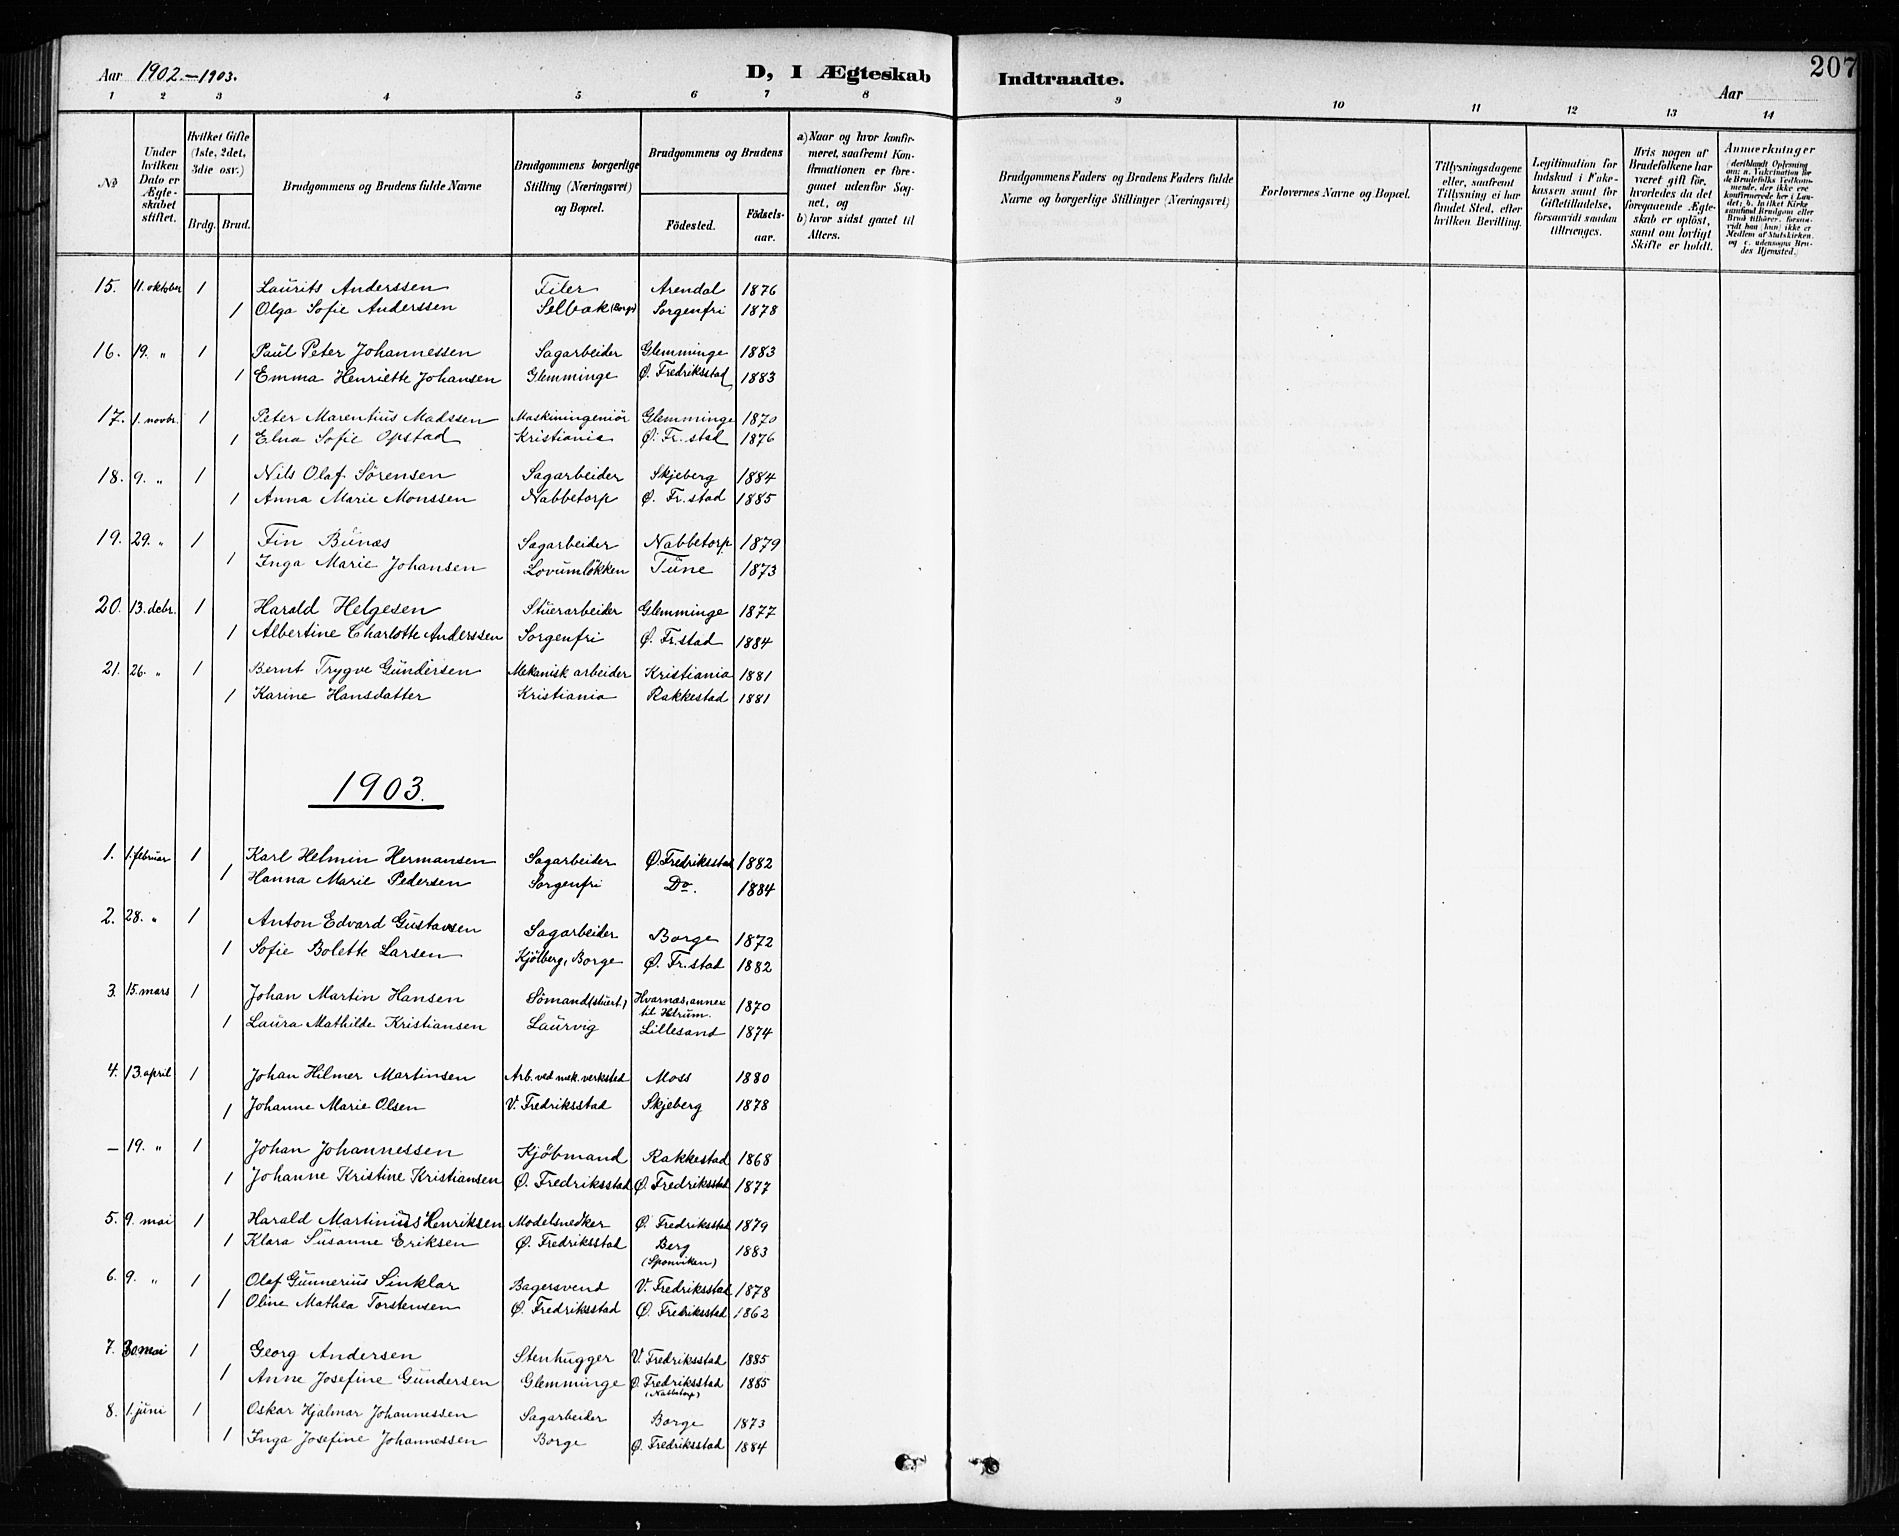 Aar 1902.–1903.
D, I Ægteskab Indtraadte.
207
Aar
1 2 3 4 5 6 7 8 9 10 11 12 13 14
No
Under hvilken Dato er Ægteskabet stiftet.
Hvilket Gifte (1ste, 2det, 3die osv.)
Brdg. Brud.
Brudgommens og Brudens fulde Navne
Brudgommens borgerlige Stilling (Næringsvei) og Bopæl.
Brudgommens og Brudens
Fødested.
Fødselsaar.
a) Naar og hvor konfirmeret, saafremt Konfirmationen er foregaaet udenfor Sognet, og
b) hvor sidst gaaet til Alters.
Brudgommens Faders og Brudens Faders fulde Navne og borgerlige Stillinger (Næringsvei)
Forlovernes Navne og Bopæl.
Tillysningsdagene eller, saafremt Tillysning ei har fundet Sted, efter hvilken Bevilling.
Legitimation for Indskud i Enkekassen samt for Giftetilladelse, forsaavidt saadan tiltrænges.
Hvis nogen af Brudefolkene har været gift før, hvorledes da det foregaaende Ægteskab er opløst, samt om lovligt Skifte er holdt.
Anmærkninger
(deriblandt Oplysning om: a. Vakcination for de Brudefolks Vedkommende, der ikke ere konfirmerede her i Landet; b. hvilket Kirkesamfund Brudgom eller Brud tilhører, forsaavidt han (hun) ikke er Medlem af Statskirken, og c. udensogns Brudes Hjemsted.)
15. 11. oktober 1 Laurits Anderssen Filer Arendal 1876
1 Olga Sofie Anderssen Selbak (Borge) Sorgenfri 1878
16. 19. " 1 Paul Peter Johannessen Sagarbeider Glemminge 1883
1 Emma Henriette Johansen Glemminge Ø. Fredriksstad 1883
17. 1. novbr. 1 Peter Marentius Madssen Maskiningeniör Glemminge 1870
1 Elna Sofie Opstad Kristiania Ø. Fr. stad 1876
18. 9. " 1 Nils Olaf Sörensen Sagarbeider Skjeberg 1884
1 Anna Marie Monssen Nabbetorp Ø. Fr. stad 1885
19. 29. " 1 Fin Bünæs Sagarbeider Nabbetorp 1879
1 Inga Marie Johansen Lovumlökken Tune 1873
20. 13. debr. 1 Harald Helgesen Stuerarbeider Glemminge 1877
1 Albertine Charlotte Anderssen Sorgenfri Ø. Fr. stad 1884
21. 26. " 1 Bernt Trygve Gundersen Mekanisk arbeider Kristiania 1881
1 Karine Hansdatter Kristiania Rakkestad 1881
1903.
1. 1. februar 1 Karl Helmin Hermansen Sagarbeider Ø. Fredriksstad 1882
1 Hanna Marie Pedersen Sorgenfri Do. 1884
2. 28. " 1 Anton Edvard Gustavsen Sagarbeider Borge 1872
1 Sofie Bolette Larsen Kjölberg, Borge Ø. Fr. stad 1882
3. 15. mars 1 Johan Martin Hansen Sömand (stuert.) Hvarnæs, annex til Hedrum. 1870
1 Laura Mathilde Kristiansen Laurvig Lillesand 1874
4. 13. april 1 Johan Hilmer Martinsen Arb. ved mek. verksted Moss 1880
1 Johanne Marie Olsen V. Fredriksstad Skjeberg 1878
– 19. " 1 Johan Johannessen Kjöbmand Rakkestad 1868
1 Johanne Kristine Kristiansen Ø. Fredriksstad Ø. Fredriksstad 1877
5. 9. mai 1 Harald Martinius Henriksen Modelsnedker Ø. Fredriksstad 1879
1 Klara Susanne Eriksen Ø. Fredriksstad Berg (Sponviken) 1883
6. 9. " 1 Olaf Gunnerius Sinklar Bagersvend V. Fredriksstad 1878
1 Oline Mathea Torstensen Ø. Fredriksstad Ø. Fredriksstad 1862
7. 30. mai 1 Georg Andersen Stenhugger V. Fredriksstad 1885
1 Anne Josefine Gundersen Glemminge Ø. Fredriksstad (Nabbetorp) 1885
8. 1. juni 1 Oskar Hjalmar Johannessen Sagarbeider Borge 1873
1 Inga Josefine Johannessen Borge Ø. Fredriksstad 1884